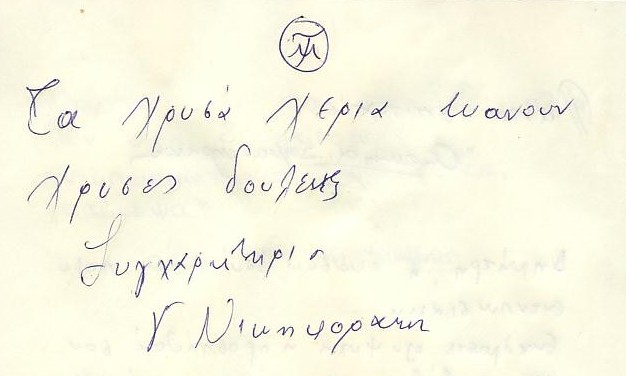 Τα χρυσά χερια κανουν
χρυσες δουλειες
Συγχαρητηρια
Γ Νικηφορακη